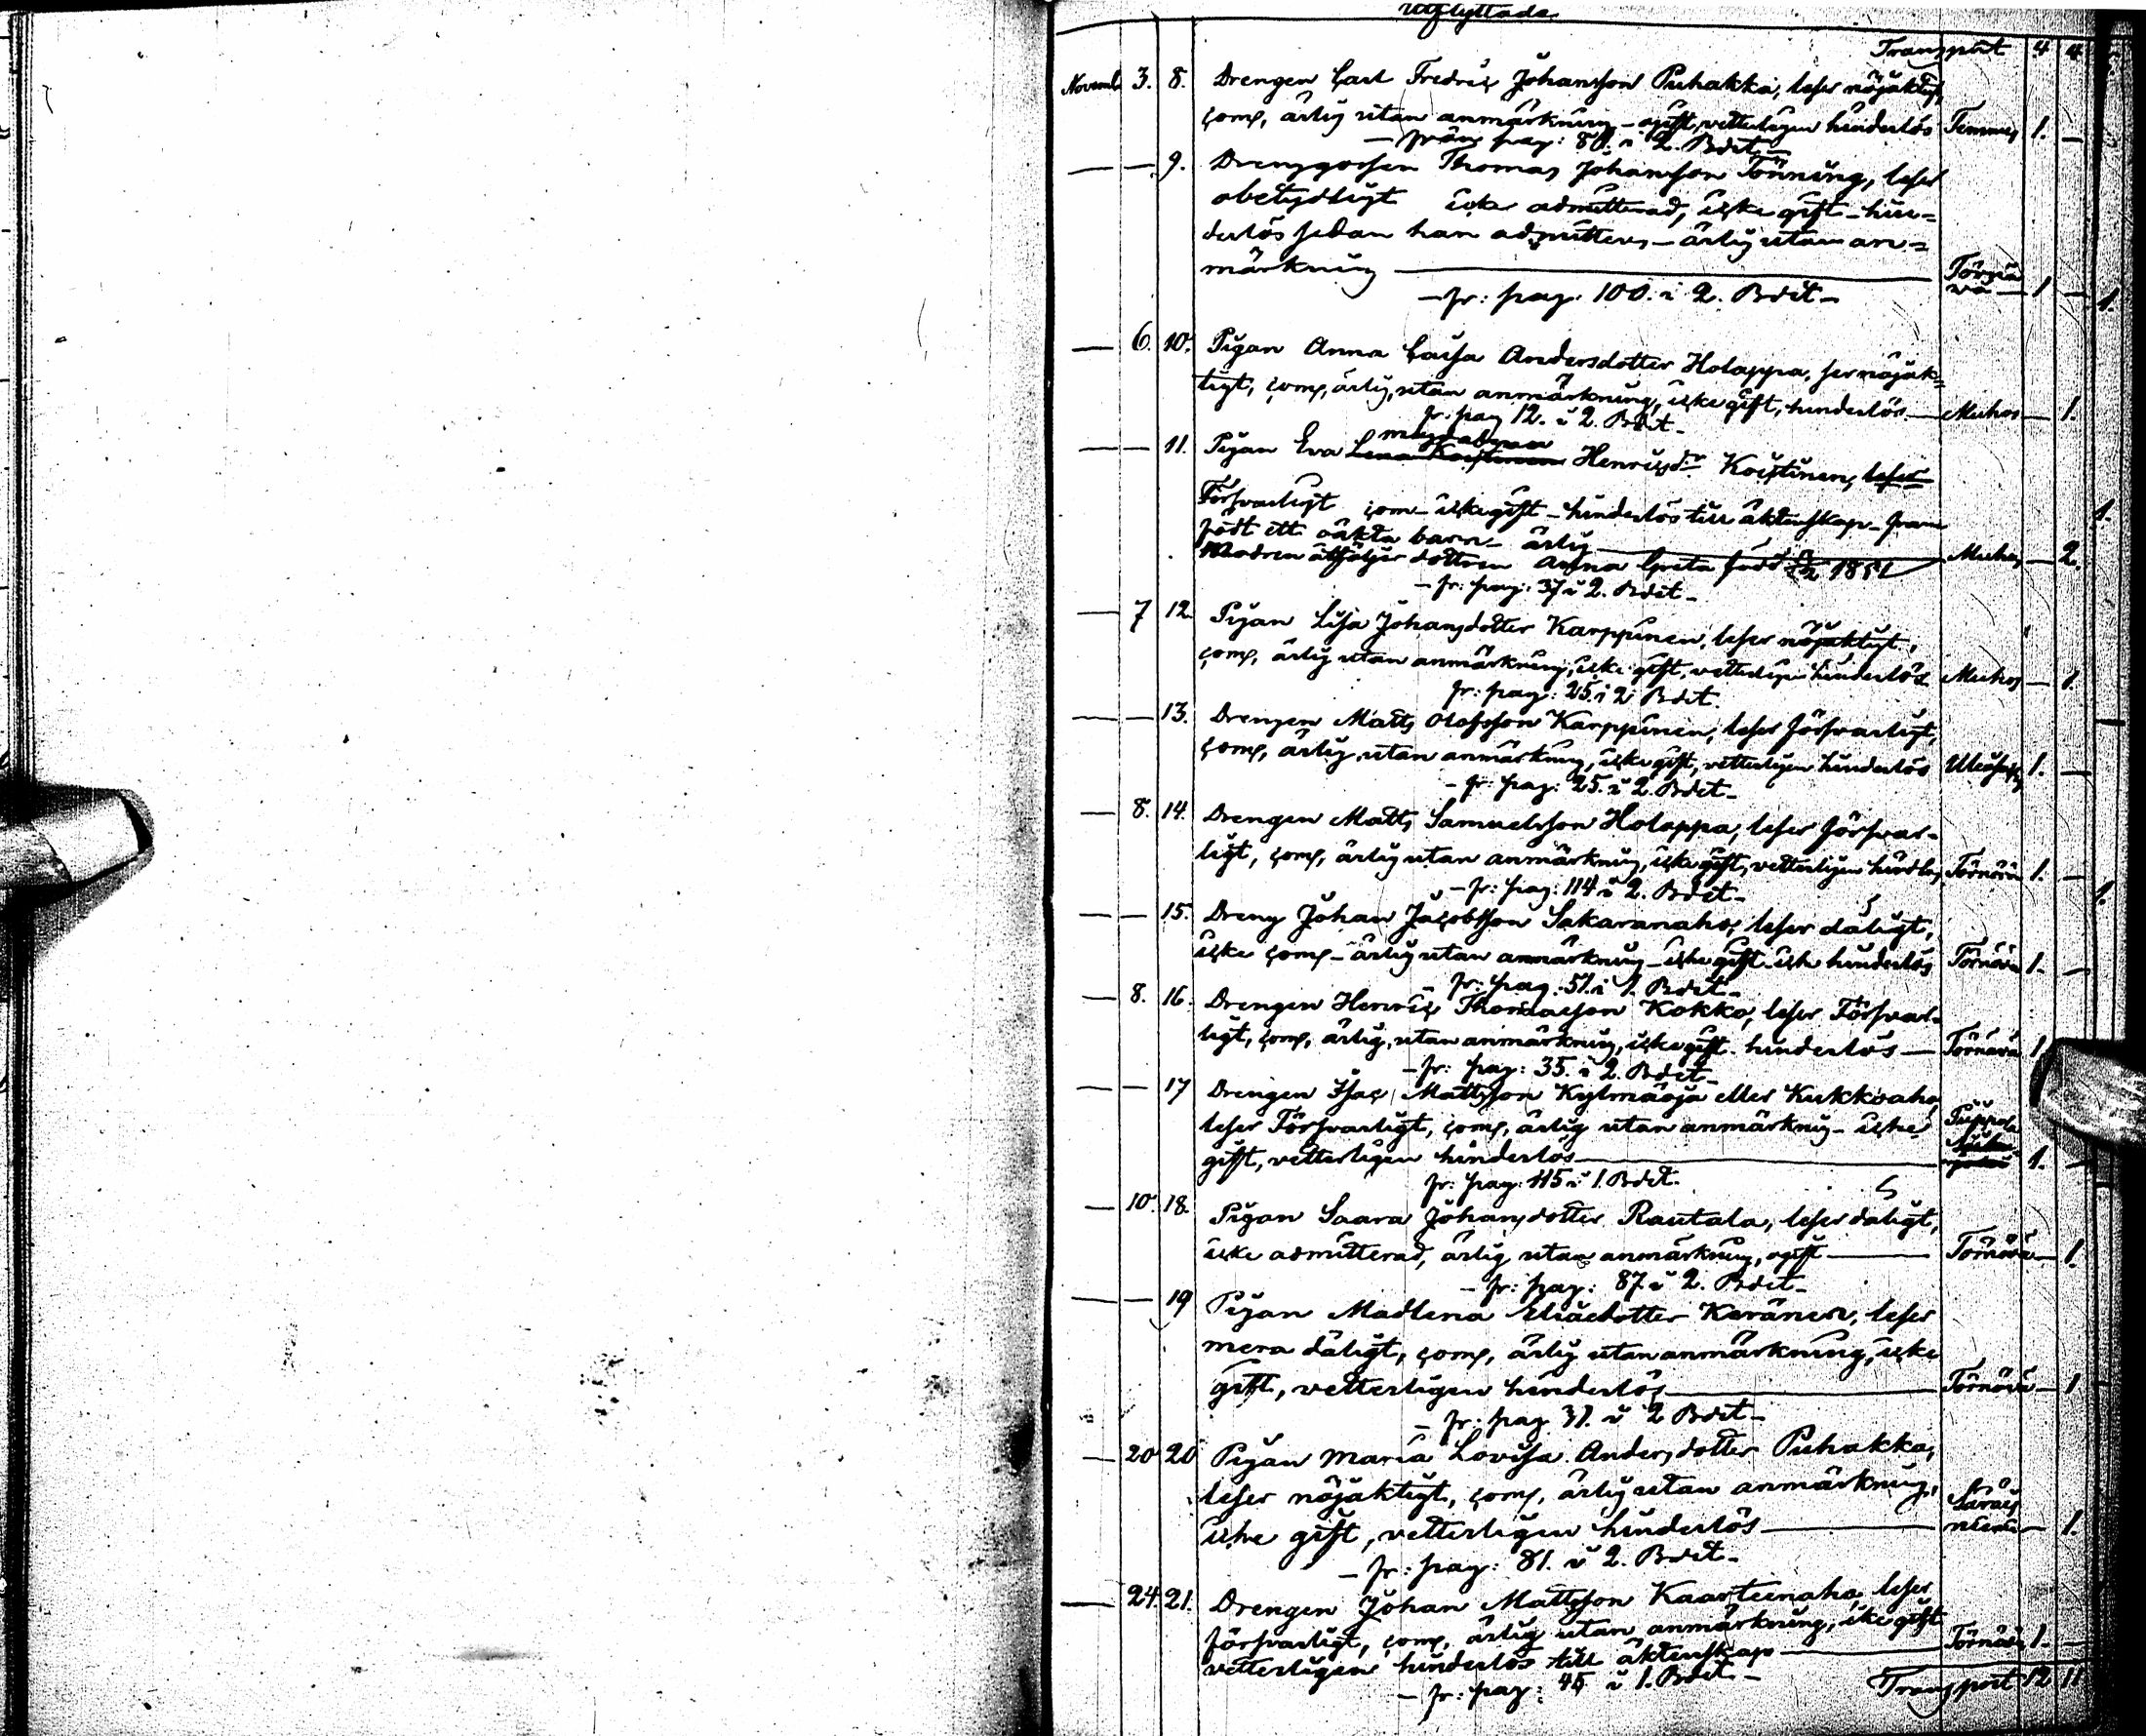 utflyttade
Transport 4 4
Novemb. 3. 8. Drengen Carl Fredric Johansson Puhakka, läser nöjaktigt,
coms, ärlig utan anmärkning – ogift, vetterligen hinderlös Temmes 1. –
– från pag: 80. i 2. Bdet –
– – 9. Drenggossen Thomas Johansson Tönning, läser
obetydligt icke admitterad, icke gift – hin=
derlös sedan han admitteras – ärlig utan an=
märkning Törnä
vä – 1 – 1.
– fr: pag: 100. i 2. Bdet –
– 6. 10. Pigan Anna Caisa Andersdotter Holappa, läser nöjak=
tigt, coms, ärlig, utan anmärkning, icke gift, hinderlös – Muhos – 1.
fr: pag 12. i 2. Bdet –
– – 11. Pigan Eva Henricsdr Koistinen, läser
Försvarligt com – icke gift – hinderlös till äktenskap – fram
födt ett oäkta barn – ärlig Muhos – 2. 1.
Modren åtföljer dottren Anna Greta född 1851
– fr: pag: 37 i 2. Bdet –
– 7 12. Pigan Lisa Johansdotter Karppinen, läser nöjaktigt,
coms, ärlig utan anmärkning, icke gift, vetterligen hinderlös Muhos – 1.
fr: pag: 25. i 2 Bdet.
– – 13. Drengen Matts Olofsson Karppinen, läser försvarligt,
coms, ärlig, utan anmärkning, icke gift, vetterligen hinderlös 1. –
– fr: pag: 25. i 2. Bdet –
– 8. 14. Drengen Matts Samuelsson Holappa, läser försvar-
ligt, coms, ärlig utan anmärkning, icke gift, vetterligen hindlös, Törnävä 1. –
– fr: pag: 114 i 2. Bdet – 1.
– – 15. Dreng Johan Jacobsson Sakaranaho, läser dåligt,
icke coms – ärlig utan anmärkning – icke gift – icke hinderlös Törnävä 1. –
fr: pag: 51. i 1. Bdet –
– 8. 16. Drengen Henric Thomasson Kokko, läser Försvar-
ligt, coms, ärlig, utan anmärkning, icke gift – hinderlös – Törnävä 1.
– fr: pag: 35. i 2. Bdet –
– – 17 Drengen Isac Mattsson Kylmäoja eller Kukkoaho,
läser Försvarligt, coms, ärlig utan anmärkning – icke Piippola
gift, vetterligen hinderlös 1. –
fr: pag: 115 i 1. Bdet.
– 10. 18. Pigan Saara Johansdotter Rautala, läser dåligt,
icke admitterad, ärlig utan anmärkning, ogift – Törnävä – 1.
– fr: pag: 87. i 2. Bdet –
– – 19 Pigan Madlena Eliaedotter Keränen, läser
mera dåligt, coms, ärlig utan anmärkning, icke
gift, vetterligen hinderlös – Törnävä – 1
– fr: pag 31. i 2 Bdet –
– 20 20 Pigan Maria Lovisa Andersdotter Puhakka,
läser nöjaktigt, coms, ärlig utan anmärkning, Säräis
icke gift, vetterligen hinderlös – niemi – 1.
– fr: pag: 81. i 2. Bdet –
– 24. 21. Drengen Johan Mattsson Kaarteenaho, läser
försvarligt, coms, ärlig utan anmärkning, icke gift
vetterligen hinderlös till äktenskap – Törnävä 1. –
– fr: pag: 45 i 1. Bdet –
Transport 12 11